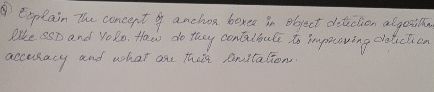 Q) Explain The concept of anchor boxes in object detection algorithm
like SSD and Yolo. How do they contribute to improving detection
accuracy and what are their limitations.